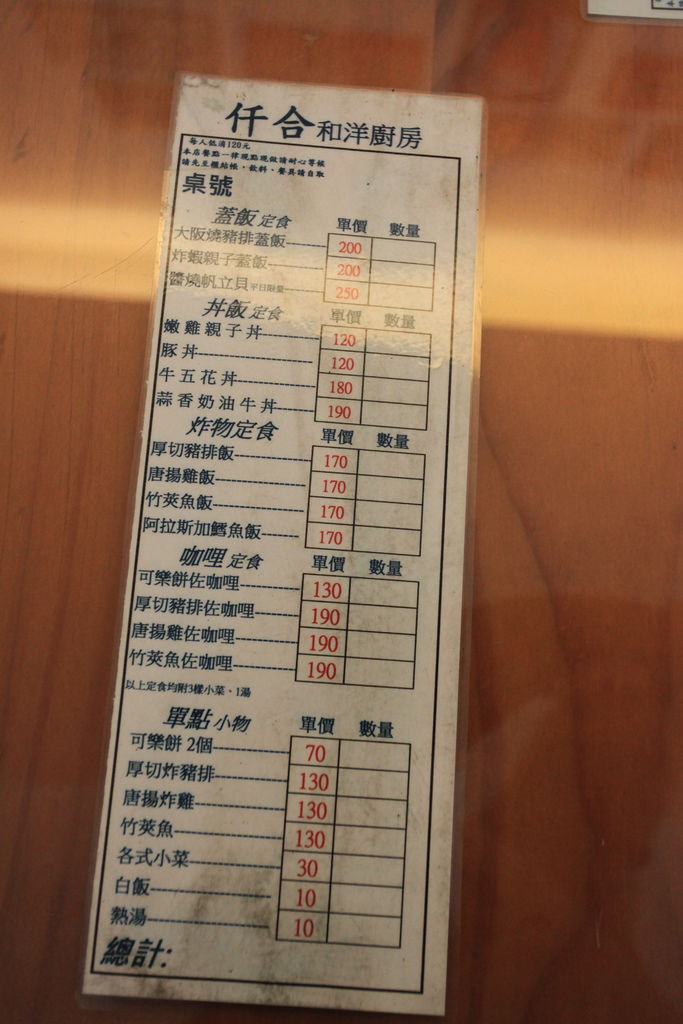 仟合和洋廚房
每人低消120元
本店餐點一律現點現做請耐心等候
請先至櫃結帳，飲料、餐具請自取
桌號
蓋飯 定食 單價 數量
大阪燒豬排蓋飯 200
炸蝦親子蓋飯 200
醬燒帆立貝平日限量 250
丼飯 定食 單價 數量
嫩雞親子丼 120
豚丼 120
牛五花丼 180
蒜香奶油牛丼 190
炸物定食 單價 數量
厚切豬排飯 170
唐揚雞飯 170
竹莢魚飯 170
阿拉斯加鱈魚飯 170
咖哩 定食 單價 數量
可樂餅佐咖哩 130
厚切豬排佐咖哩 190
唐揚雞佐咖哩 190
竹莢魚佐咖哩 190
以上定食均附3樣小菜、1湯
單點 小物 單價 數量
可樂餅 2個 70
厚切炸豬排 130
唐揚炸雞 130
竹莢魚 130
各式小菜 30
白飯 10
熱湯 10
總計: